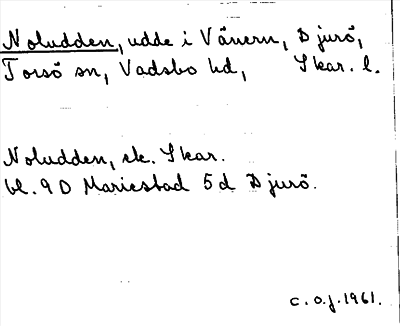 Noludden, udde i Vänern, Djurö,
Torsö sn, Vadsbo hd, Skar. l.
Noludden, ek. Skar.
bl. 9D Mariestad 5d Djurö.
c. o. j. 1961.